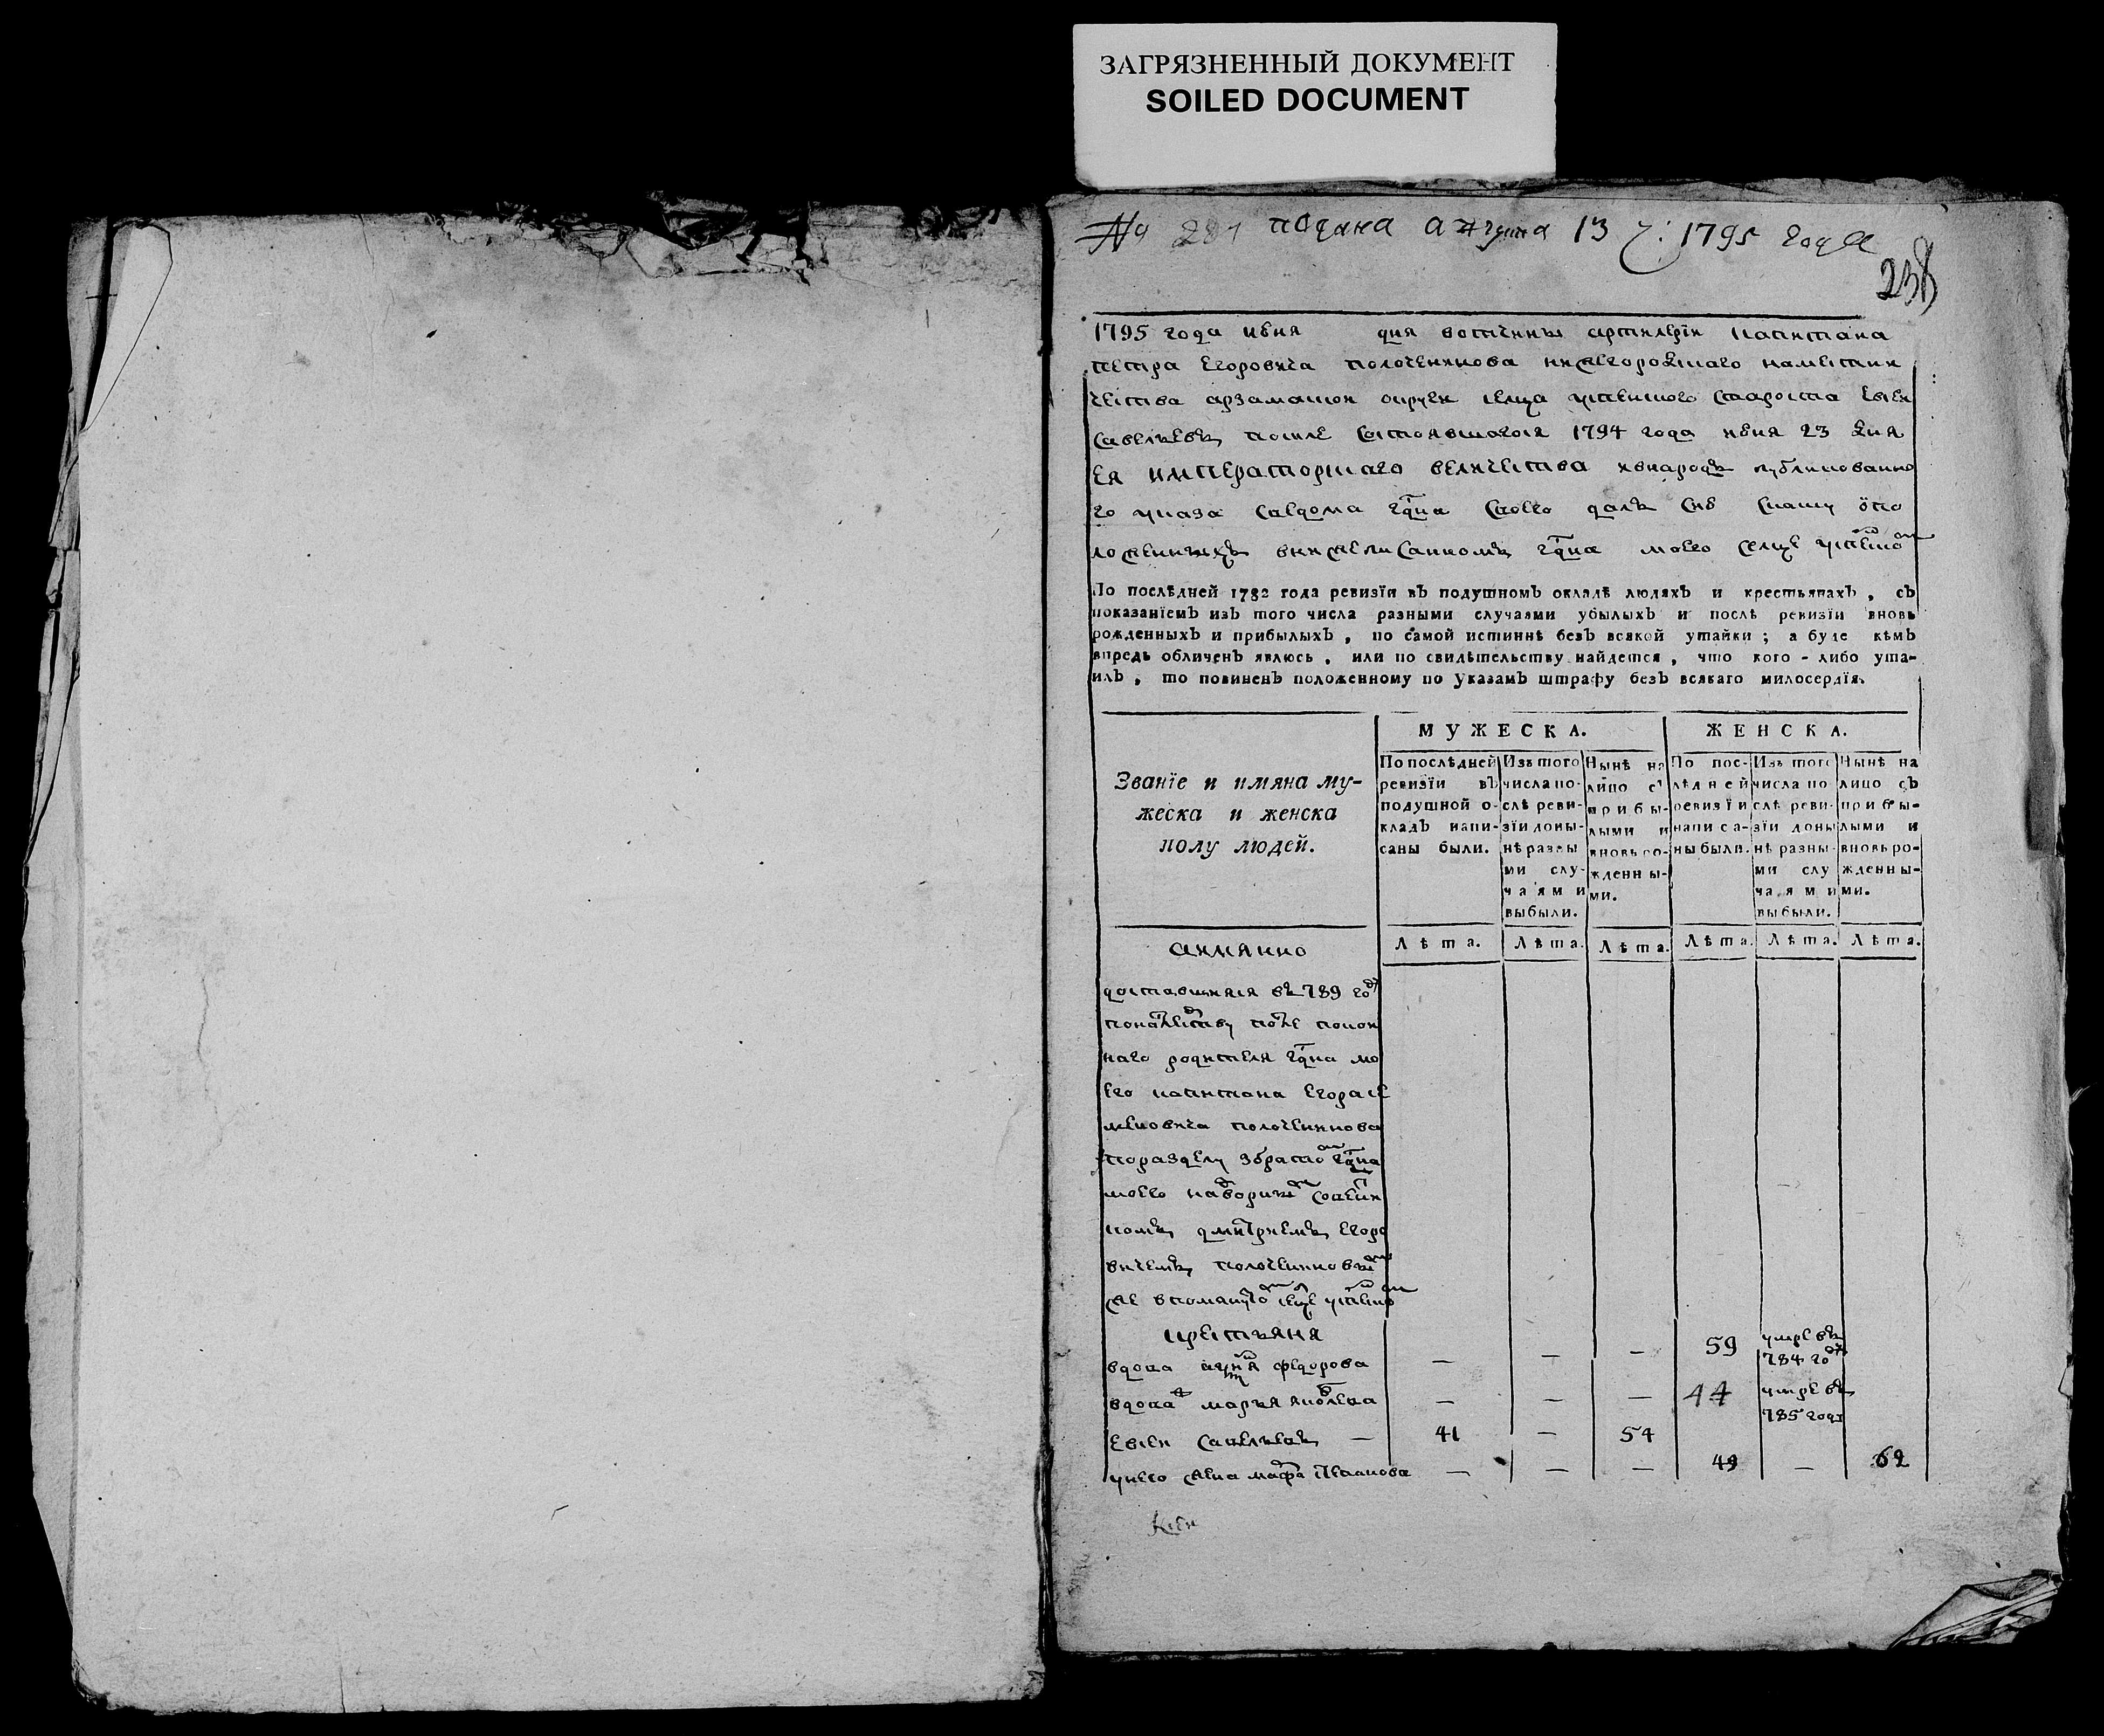 ЗАГРЯЗНЕННЫЙ ДОКУМЕНТ
SOILED DOCUMENT
подана августа 13 ч: 1795 года
238
1795 года июня дня вотчины артилерїи капитана
петра Егоровича полочениннова нижегороцкаго намѣстни
чества арзамаской округи селца староста Евсей
савельевъ после состоявшагося 1794 года июня 23 дня
Ея императорскаго величества внародъ публикованно
го указа саедома гдна своего далъ сию скаску ѡпо
ложенныхъ внижеписанномъ гдна моего селце
По послѣдней 1782 года ревизїи въ подушномъ окладѣ людяхъ и крестьянахъ, съ
показанїемъ изъ того числа разными случаями убылыхъ и послѣ ревизїи вновь
рожденныхъ и прибылыхъ, по самой истиннѣ безъ всякой утайки; а буде кѣмъ
впредь обличенъ явлюсь, или по свидѣтельству найдется, что кого-либо ута-
илъ, то повиненъ положенному по указамъ штрафу безъ всякаго милосердїя.
Званїе и имяна му-
жеска и женска
полу людей.
МУЖЕСКА.
По послѣдней
ревизїи въ
подушной о-
кладъ напи-
саны были.
Изъ того
числа по-
слѣ реви-
зїи доны-
нѣ разны
ми слу-
чаями
выбыли.
Нынѣ на
лицо съ
прибы-
лыми и
вновь ро-
жденны-
ми.
ЖЕНСКА.
По пос-
лѣдней
ревизїи
написа-
ны были.
Изъ того
числа по
слѣ реви-
зїи доны
нѣ разны-
ми слу
чаями
выбыли.
Нынѣ на
лицо съ
прибы-
лыми и
вновь ро-
жденны-
ми.
Лѣта. Лѣта. Лѣта. Лѣта. Лѣта. Лѣта.
аимянно
доставшияся въ 789 год
понаследству после покои
наго родителя гдна мо
его капитана Егора се
меновича полочениннова
поразделу збратом гдна
моего надворным советни
комъ дмитриемъ Егоро
вичемъ полочениновым
же впомянутом селце
крестьяня
вдова федорова — — — 59 умре въ 784 год
вдова марья яковлева — — — 44 умре въ 785 году
Евсей савельевъ — 41 — 54
унего жена марфа Иванова — — — 49 — 62